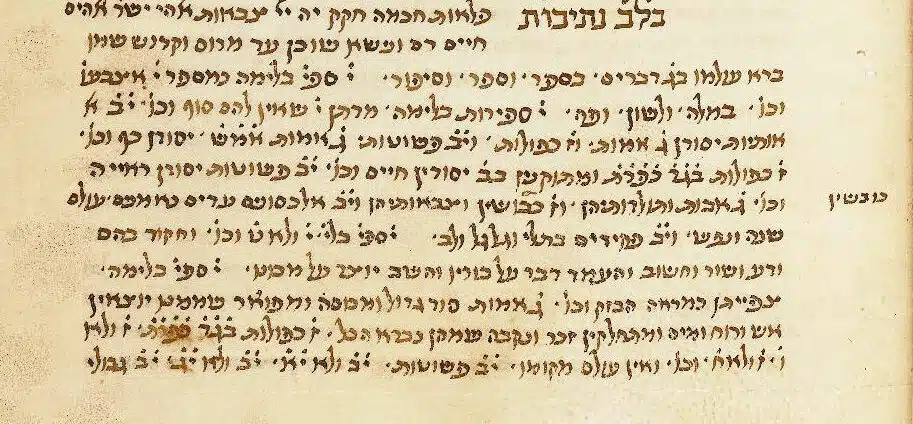 בלב נתיבות פלאות חכמה חקק יה יי צבאות אהי ישר אהים
חיים רם ונשא שוכן עד מרום וקדוש שמו
ברא עולמו בג דברים בספר וספר וסיפור י ספי בלימה במספר י אצבעו
וכו במולה ולשון ופה י ספירות בלימה מדתן י שאין להם סוף וכו יב א
אותיות יסודן ג אמות ז כפולות ויב פשוטות ג אמות אמש יסודן כף וכו
ז כפולות בגד כפרת ומתוקנין בב יסודין חיים וכו יב פשוטות יסודן ראייה
וכו ג אבות ותולדותיהן וז כבושין וצבאותיהן ויב אלכסונים עדים נאמנים עולם
כובשין
שנה ונפש ויב פקידים בתלי וגלגל ולב י ספי בלי י ולא ט וכו וחקור בהם
ודע ושור וחשוב והעמד דבר על בוריו והשב יוצר על מכונו י ספי בלימה
צפייתן כמראה הבזק וכו ג אמות סוד גדול ומכוסה ומפואר שממנו יוצאין
אש ורוח ומים ומתחלקין זכר ונקבה שמהן נברא הכל ז כפולות בגד כפרת ז ולא
ו ז ולא ח וכו ואין עולם מקומו יב פשוטות יב ולא יא יב ולא יג יב גבולי